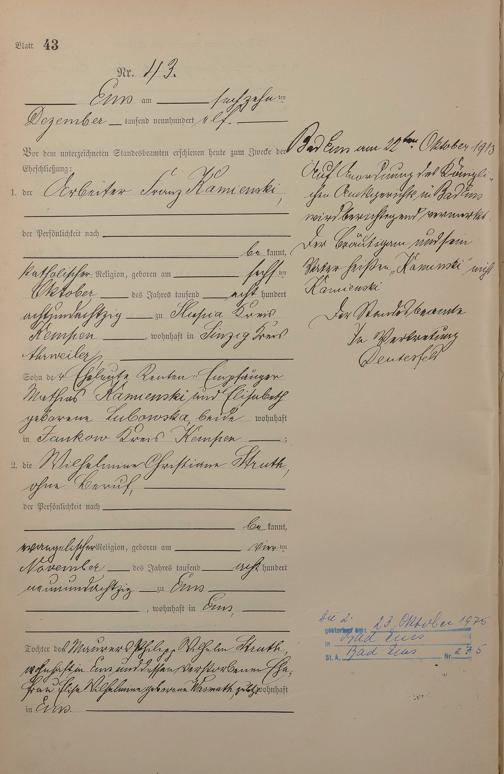 Blatt 43
Nr. 43.
Ems am sechzehnten
Dezember tausend neunhundert elf.
Vor dem unterzeichneten Standesbeamten erschienen heute zum Zwecke der
Eheschließung:
1. der Arbeiter Franz Kamienski,
der Persönlichkeit nach
bekannt,
katholischer Religion, geboren am sechsten
Oktober des Jahres tausend achthundert
achtundachtzig zu Kreis
Kempen, wohnhaft in Sinzig Kreis
Ahrweiler,
Sohn der Eheleute Renten-Empfänger
Mathias Kamienski und Elisabeth
geborene Lubowska, beide wohnhaft
in Jankow Kreis Kempen;
2. die Wilhelmine Christiane Struth,
ohne Beruf,
der Persönlichkeit nach
bekannt,
evangelischer Religion, geboren am vierten
November des Jahres tausend achthundert
neunundachtzig zu Ems
, wohnhaft in Ems,
Tochter des Maurers Philipp Wilhelm Struth,
wohnhaft in Ems und dessen verstorbenen Ehe-
frau Elise Wilhelmine geborene wohnhaft
in Ems.
Bad Ems am 22ten Oktober 1913
Auf Anordnung des Königli-
chen Amtsgerichts in Bad Ems
wird berichtigend vermerkt
der Bräutigam und sein
Vater heißen "Kaminski" nicht
Kamienski
Der Standesbeamte
In Vertretung
Die 2.
gestorben am 23. Oktober 1975
in Bad Ems
St. A. Bad Ems Nr. 275